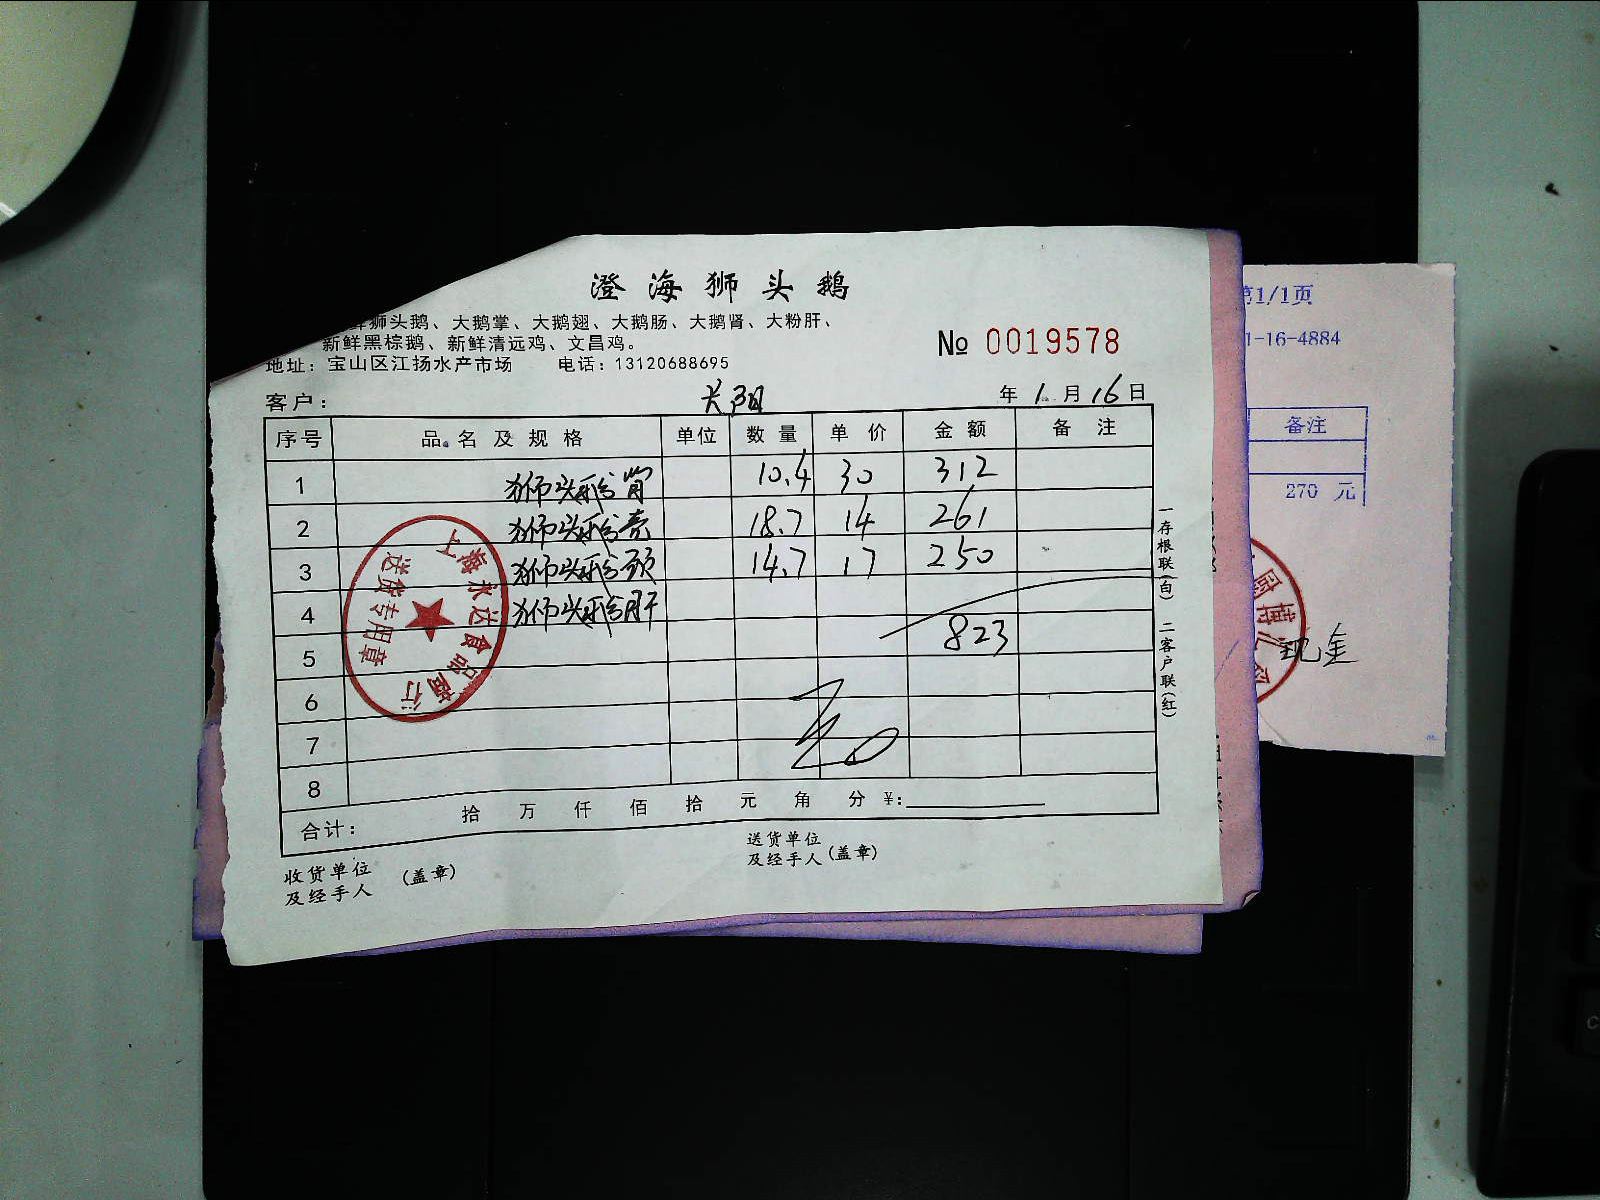 澄海狮头鹅
鲜狮头鹅、大鹅掌、大鹅翅、大鹅肠、大鹅肾、大粉肝、
新鲜黑棕鹅、新鲜清远鸡、文昌鸡。
№ 0019578
地址：宝山区江扬水产市场 电话：13120688695
客户： 长阳 年 1 月 16 日
序号 品名及规格 单位 数量 单价 金额 备注
1 狮头鹅肾 10.4 30 312
2 狮头鹅壳 18.7 14 261
3 狮头鹅头 14.7 17 250
4 狮头鹅肝
5 823
6
7
8
合计： 拾 万 仟 佰 拾 元 角 分 ¥:
收货单位
及经手人 (盖章)
送货单位
及经手人 (盖章)
一存根联(白) 二客户联(红)
上海永达食品商行
送货专用章
第1/1页
1-16-4884
备注
270 元
现金